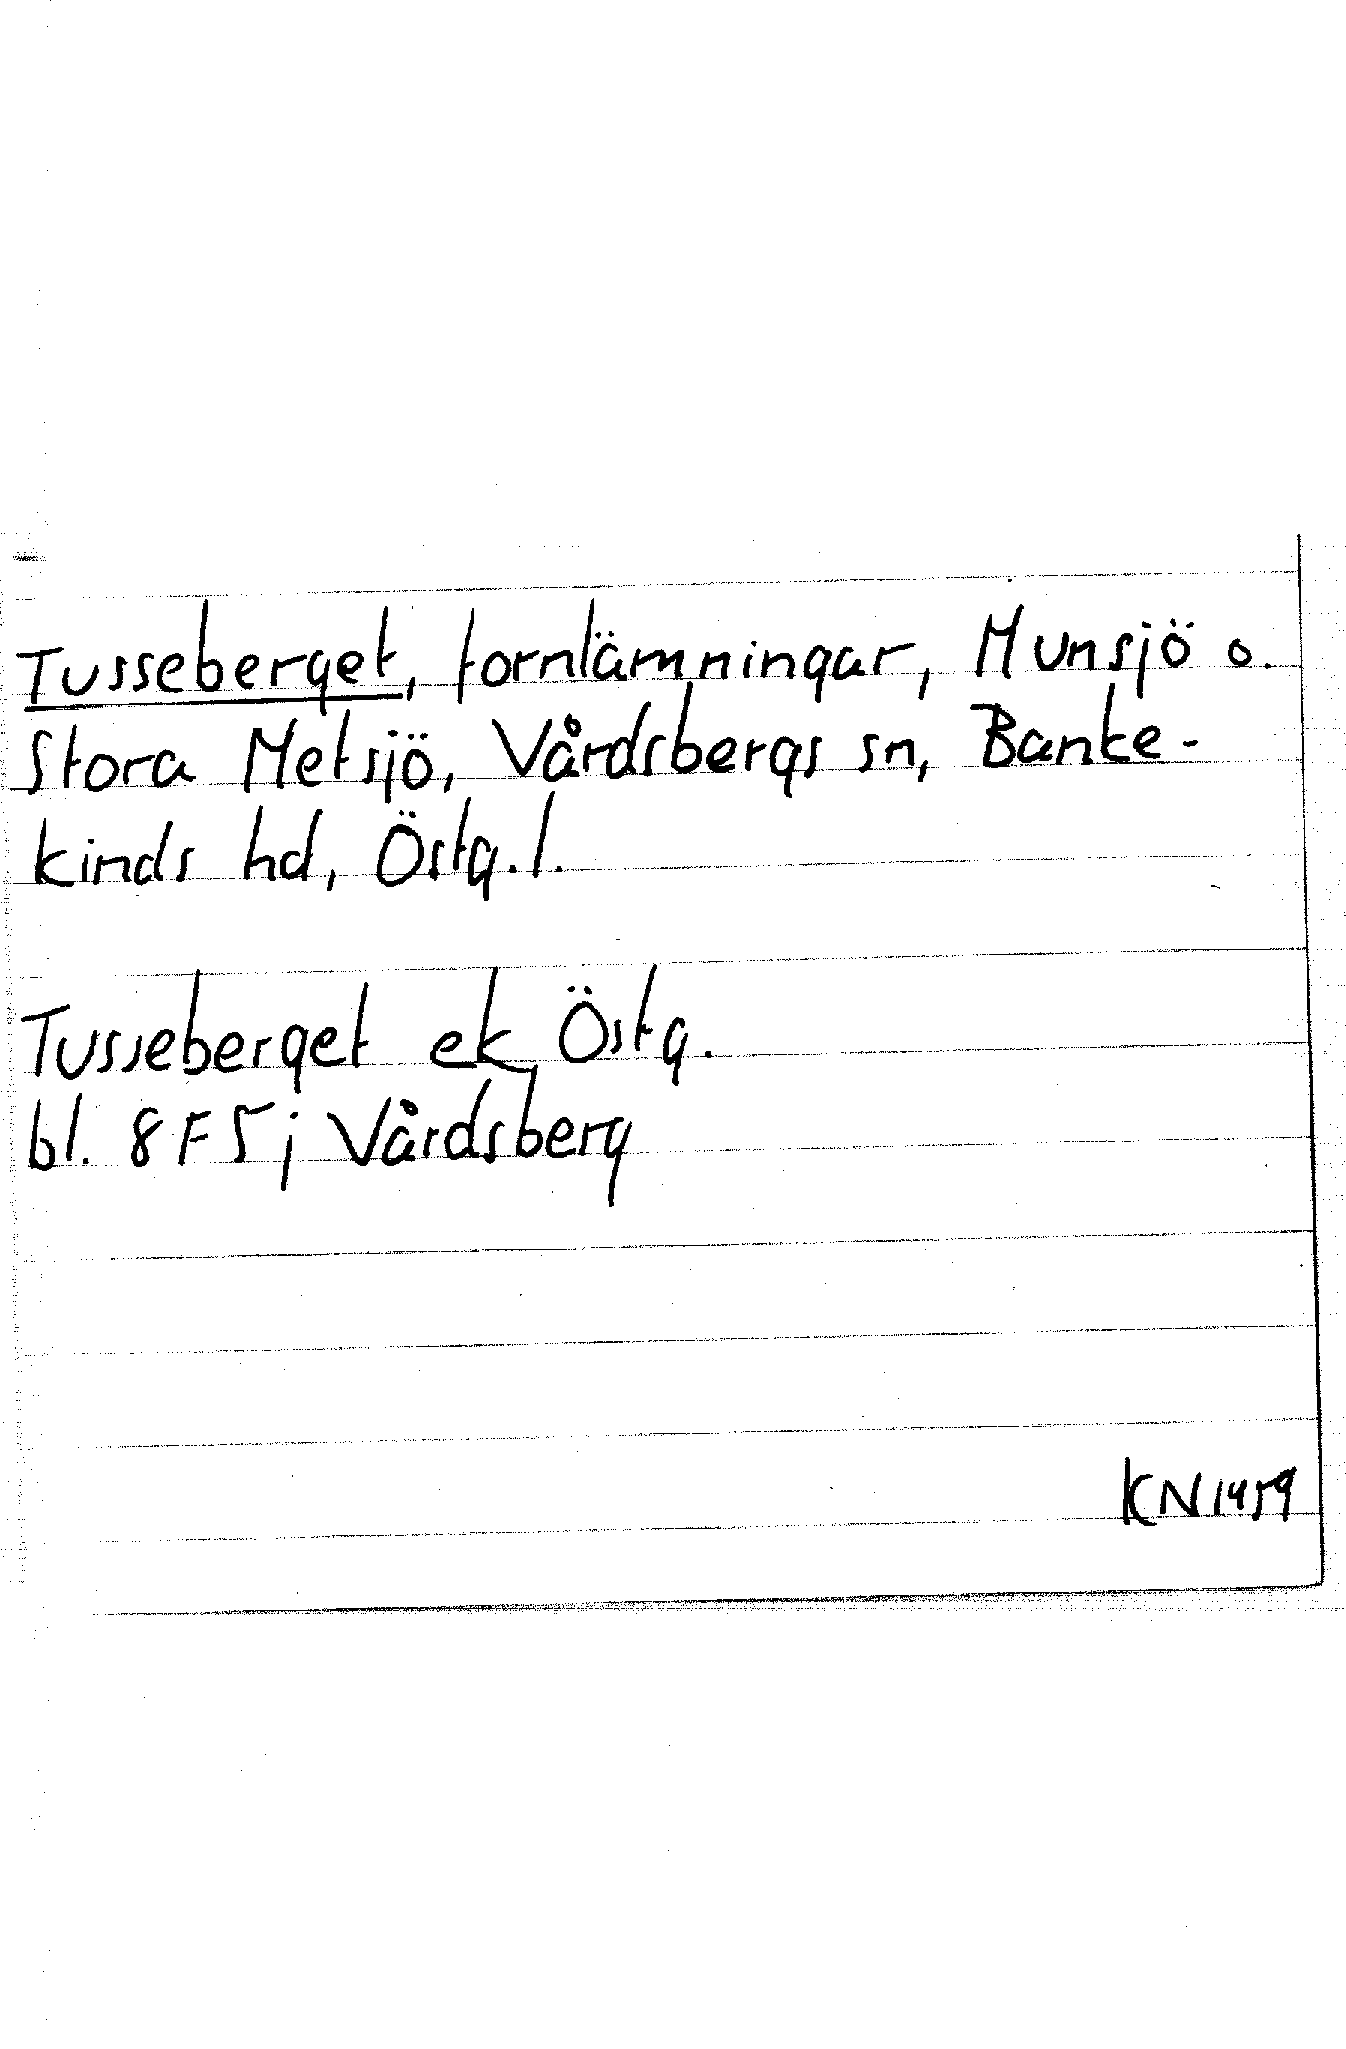 Tusseberget, fornlämningar, Munsjö o.
Stora Metsjö, Vårdsbergs sn, Banke-
kinds hd, Östg.l.
Tusseberget ek Östg.
bl. 8F5j Vårdsberg
KN 1459